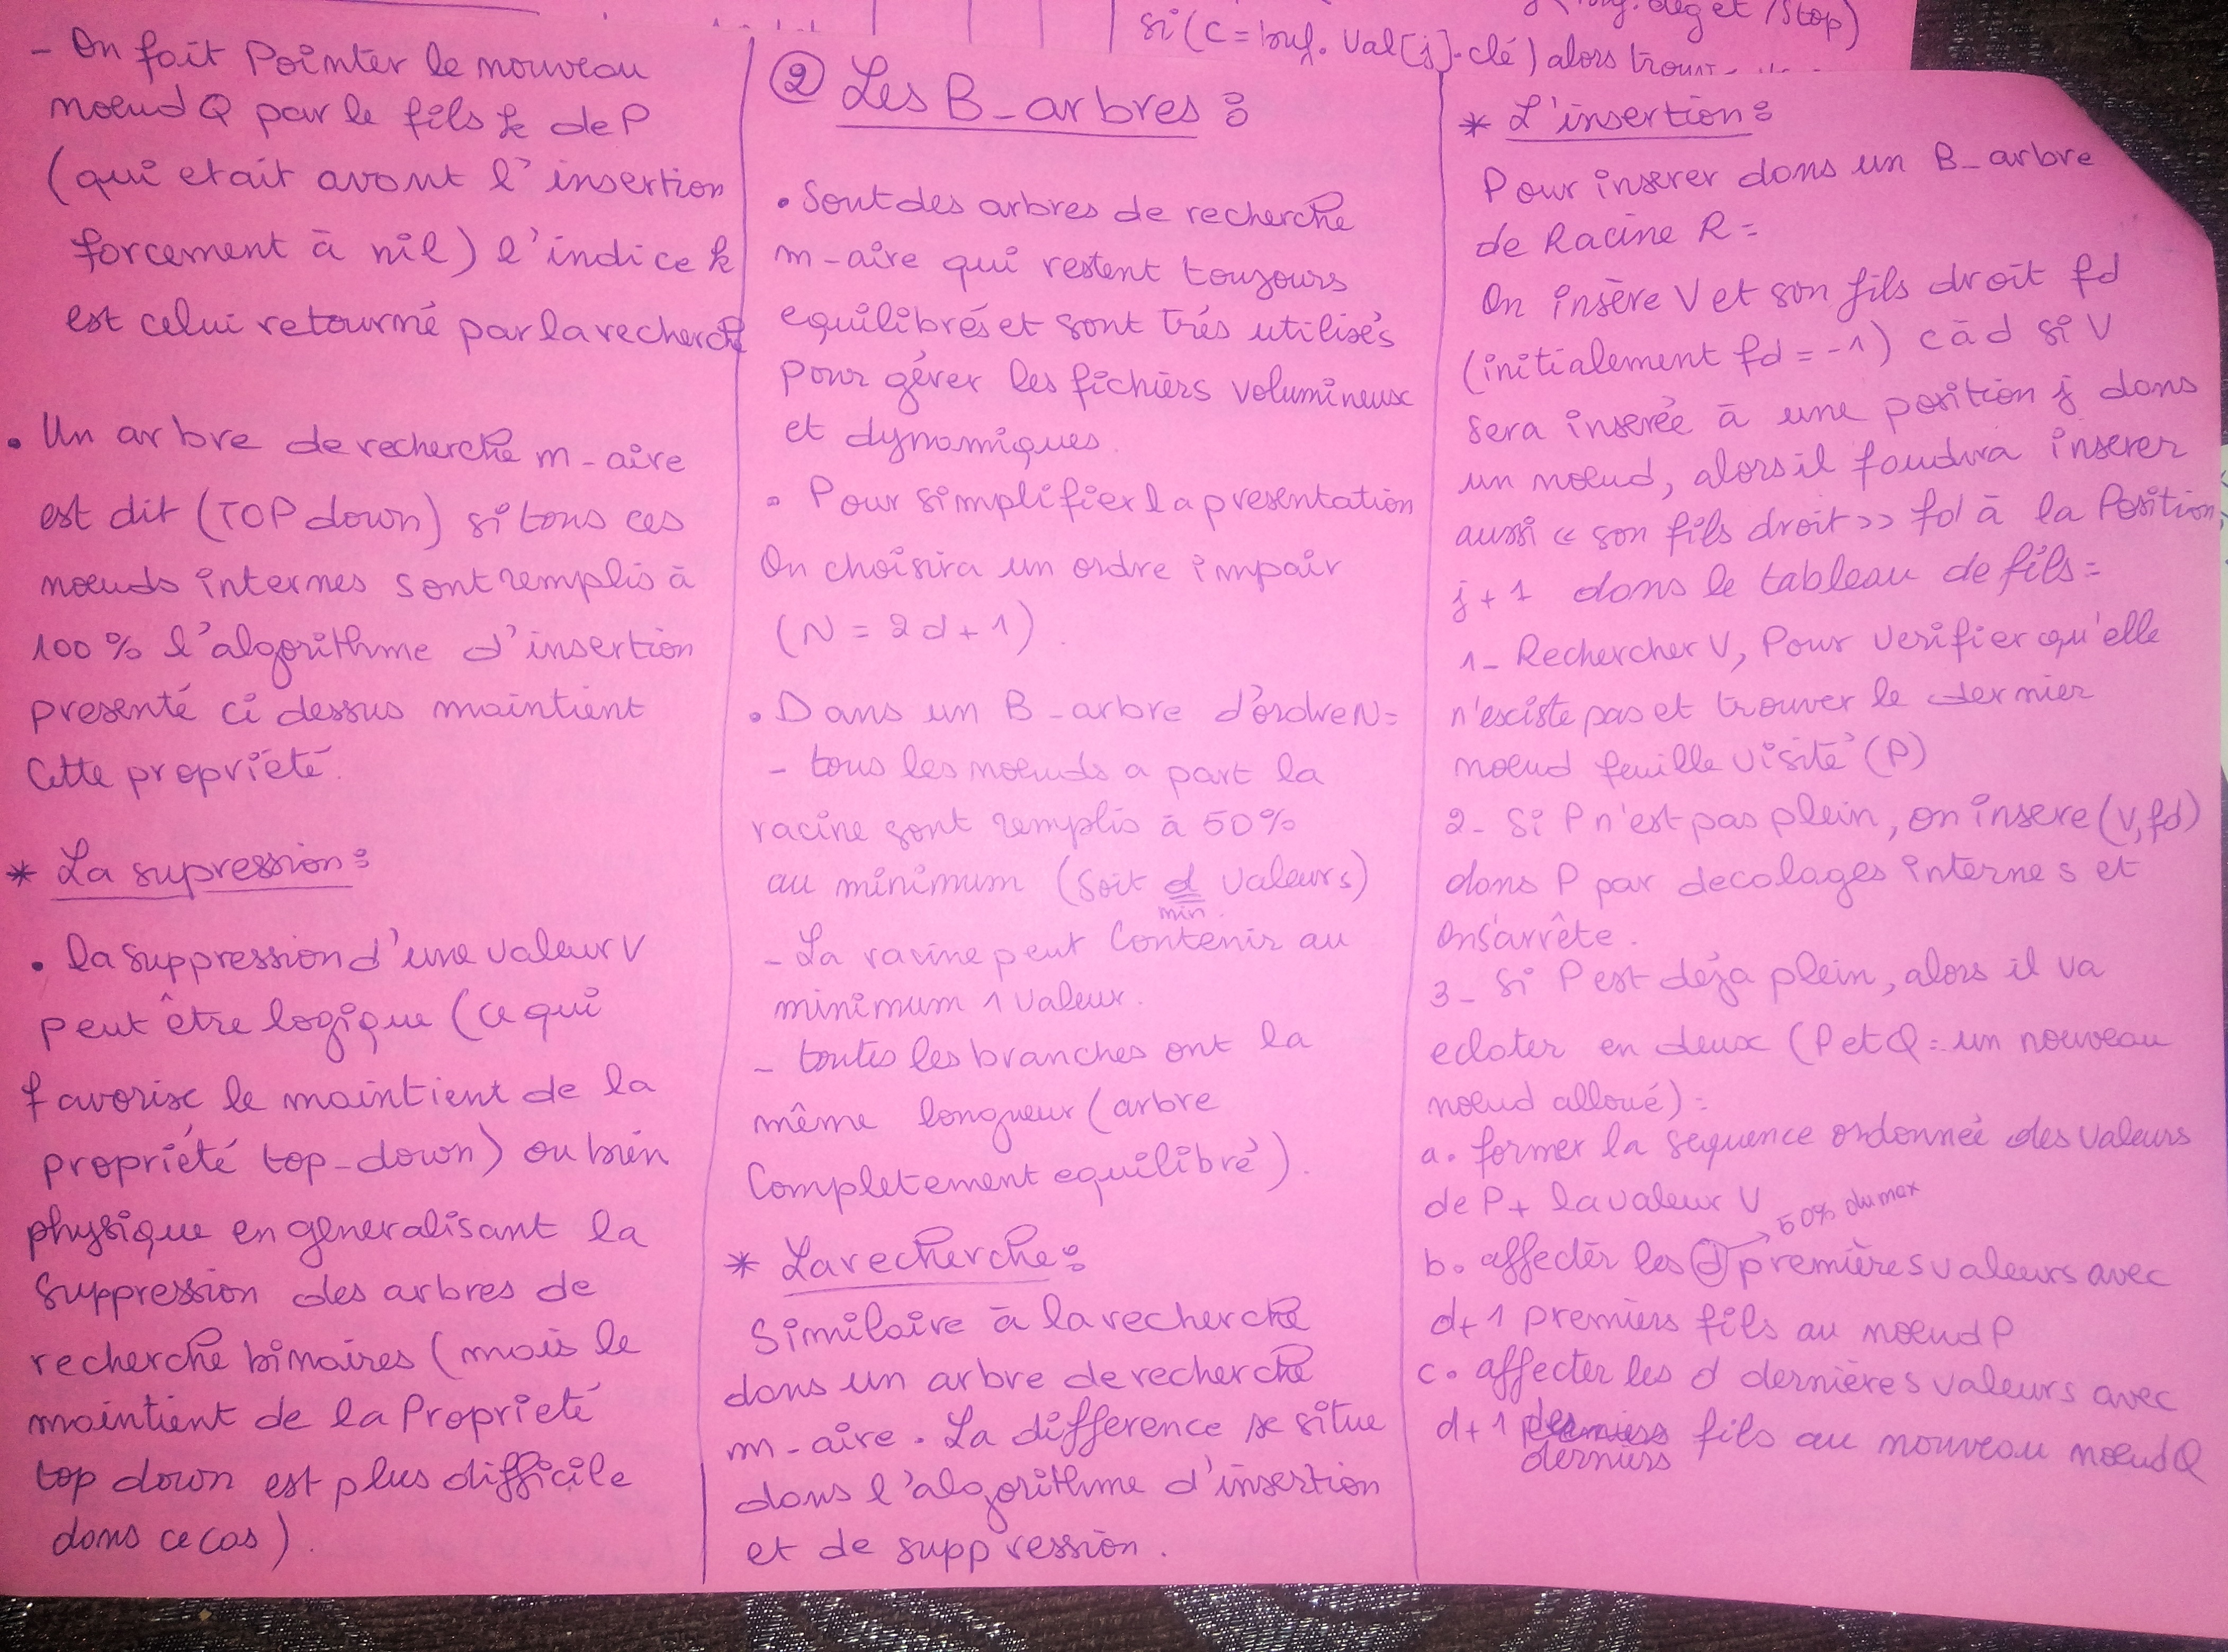 - On fait Pointer le nouveau
noeud Q par le fils k de P
(qui etait avant l'insertion
forcement à nil) l'indice k
est celui retourné par la recherche
• Un arbre de recherche m-aire
est dit (TOP down) si tous ces
noeuds internes sont remplis à
100% l'algorithme d'insertion
presenté ci dessus maintient
Cette propriété.
* La supression :
• la suppression d'une valeur V
peut être logique (ce qui
favorise le maintient de la
propriété top-down) ou bien
physique en generalisant la
suppression des arbres de
recherche binaires (mais le
maintient de la Proprieté
top down est plus difficile
dans ce cas).
si (C = buf. Val[j].clé) alors
② Les B-arbres :
• Sont des arbres de recherche
m-aire qui restent toujours
equilibrés et sont trés utilisés
pour gérer les fichiers volumineux
et dynamiques.
• Pour simplifier la presentation
On choisira un ordre impair
(N = 2d+1).
• Dans un B-arbre d'ordre N :
- tous les noeuds a part la
racine sont remplis à 50%
au minimum (soit d valeurs)
min.
- La racine peut Contenir au
minimum 1 valeur.
- toutes les branches ont la
même longueur (arbre
Completement equilibré).
* La recherche :
Similaire à la recherche
dans un arbre de recherche
m-aire. La difference se situe
dans l'algorithme d'insertion
et de suppression.
* L'insertion :
Pour inserer dans un B-arbre
de Racine R :
On insère V et son fils droit fd
(initialement fd = -1) càd si V
sera inserée à une position j dans
un noeud, alors il faudra inserer
aussi « son fils droit » fd à la Position
j+1 dans le tableau de fils :
1- Rechercher V, Pour verifier qu'elle
n'existe pas et trouver le dernier
noeud feuille visité (P)
2- Si P n'est pas plein, on insere (V, fd)
dans P par decalages internes et
on s'arrête.
3- Si P est déja plein, alors il va
eclater en deux (P et Q : un nouveau
noeud alloué) :
a. former la sequence ordonnée des valeurs
de P + la valeur V
50% du max
b. affecter les d premières valeurs avec
d+1 premiers fils au noeud P
c. affecter les d dernières valeurs avec
d+1 fils au nouveau noeud Q
derniers